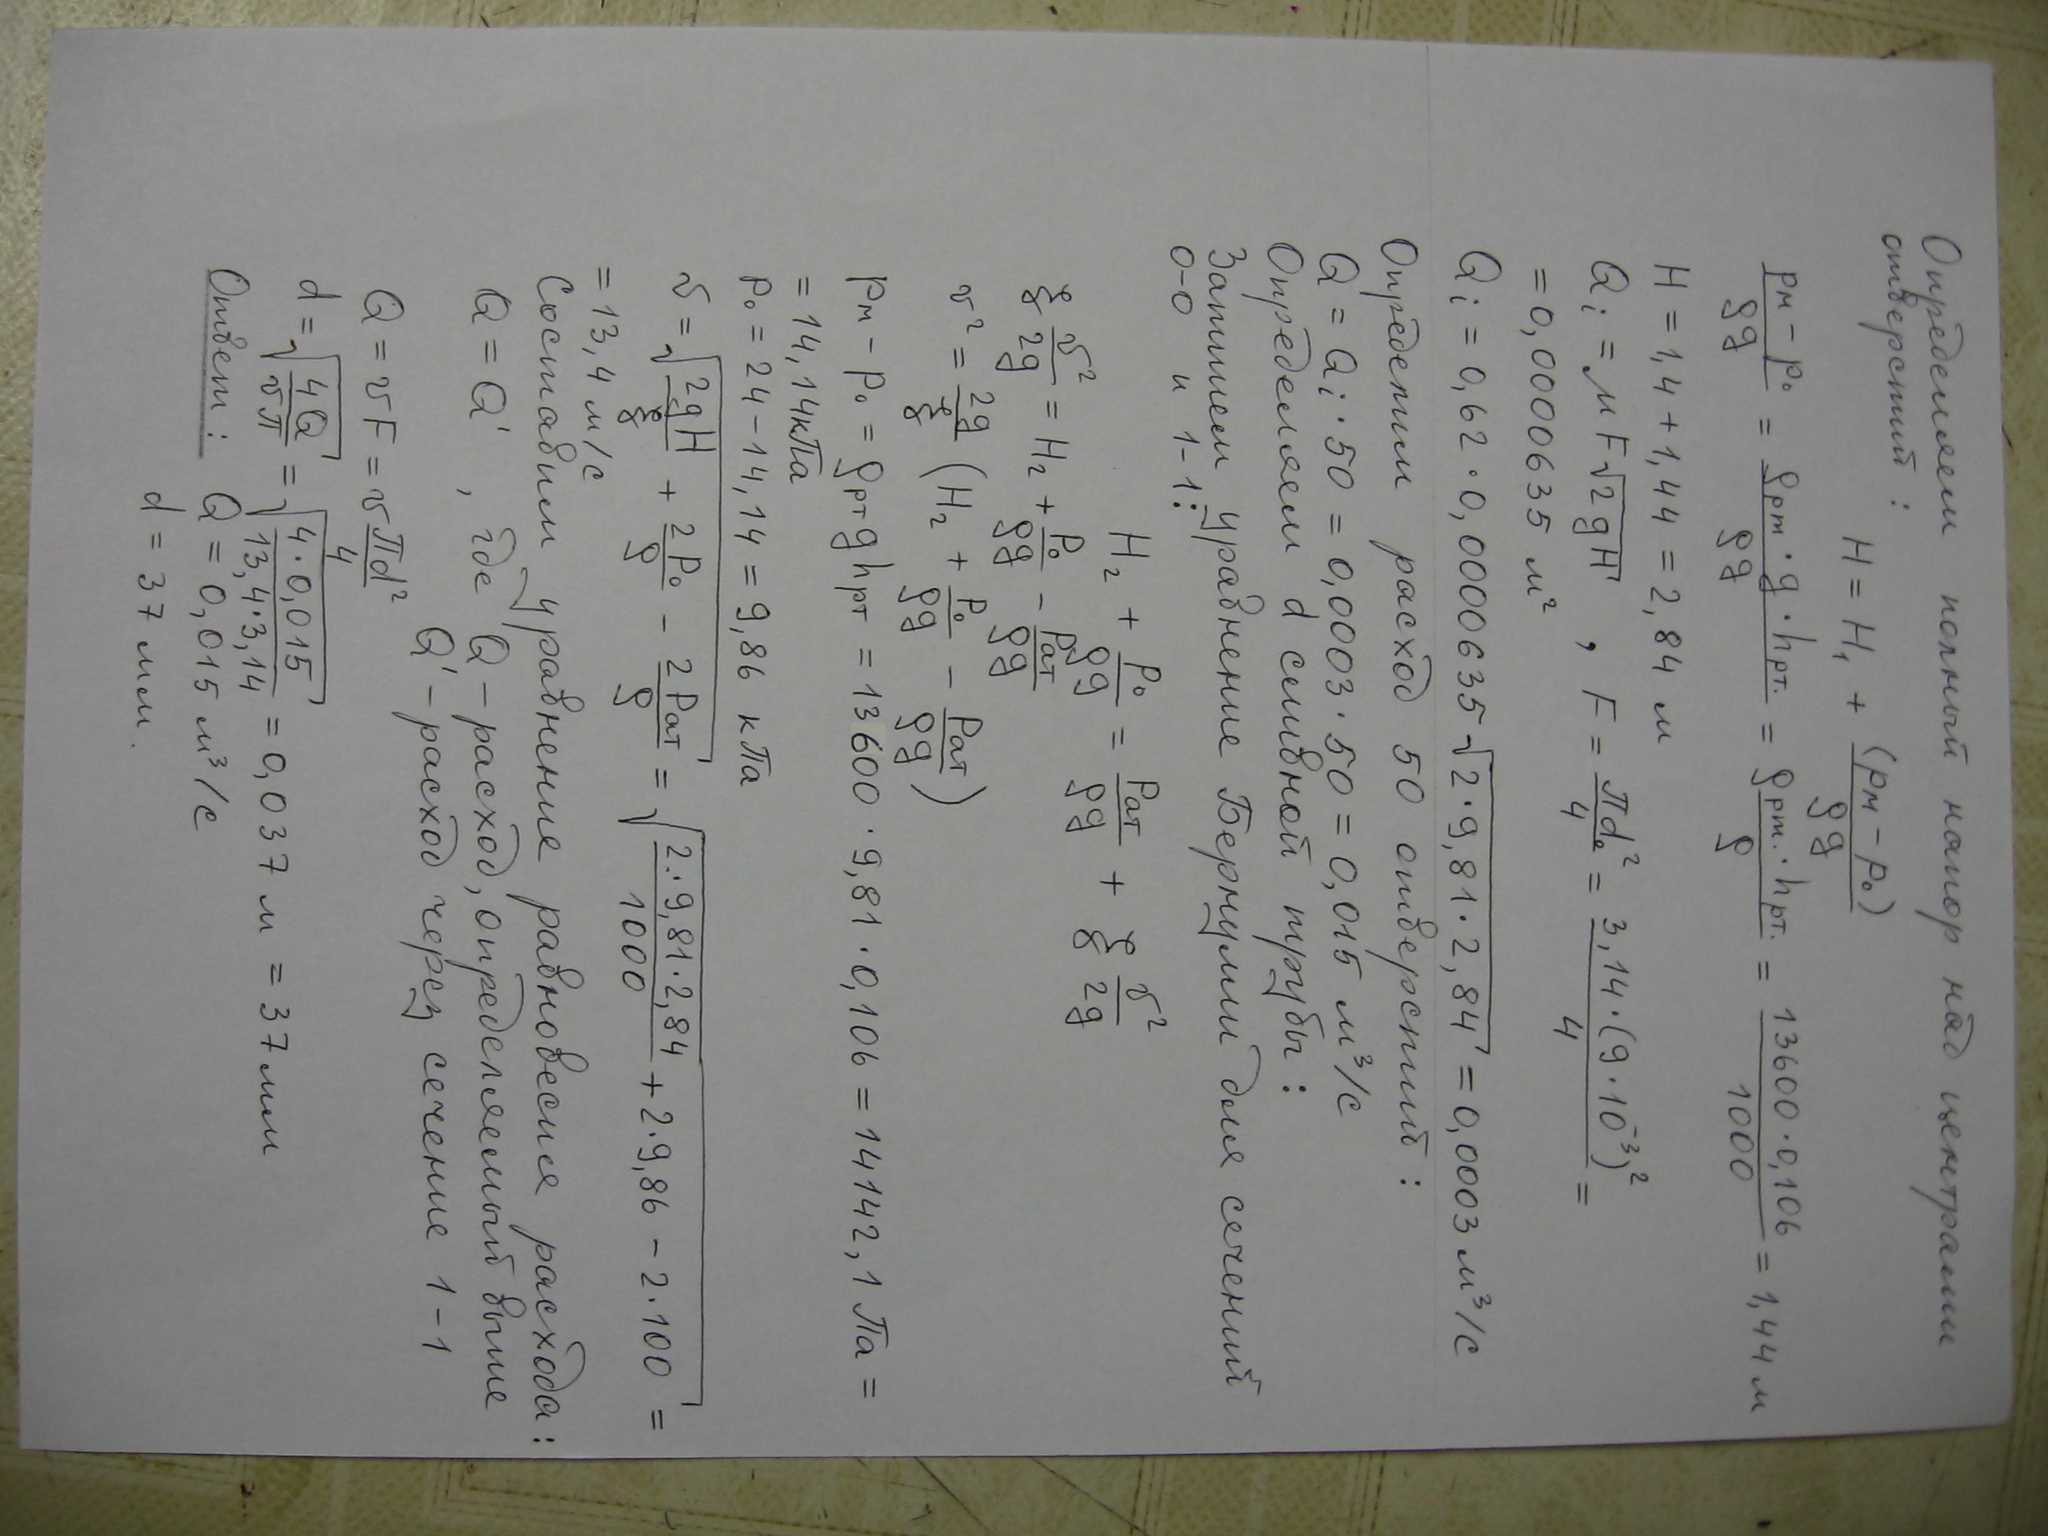 Определяем полный напор над центрами
отверстий:
H = H₁ + (pм − p₀)/ρg
(pм − p₀)/ρg = (ρрт · g · hрт.)/ρg = (ρрт. · hрт.)/ρ = (13600 · 0,106)/1000 = 1,44 м
H = 1,4 + 1,44 = 2,84 м
Qi = μF√(2gH) , F = πd₀²/4 = (3,14 · (9·10⁻³)²)/4 =
= 0,0000635 м²
Qi = 0,62 · 0,0000635 √(2·9,81·2,84) = 0,0003 м³/с
Определим расход 50 отверстий:
Q = Qi · 50 = 0,0003 · 50 = 0,015 м³/с
Определяем d сливной трубы:
Запишем уравнение Бернулли для сечений
0-0 и 1-1:
H₂ + p₀/ρg = pат/ρg + ξ v²/2g
ξ v²/2g = H₂ + p₀/ρg − pат/ρg
v² = 2g/ξ (H₂ + p₀/ρg − pат/ρg)
pм − p₀ = ρрт g hрт = 13600 · 9,81 · 0,106 = 14142,1 Па =
= 14,14кПа
p₀ = 24 − 14,14 = 9,86 кПа
v = √(2gH/ξ + 2p₀/ρ − 2pат/ρ) = √((2·9,81·2,84)/1000 + 2·9,86 − 2·100) =
= 13,4 м/с
Составим уравнение равновесия расхода:
Q = Q' , где Q – расход, определяемый выше
Q' – расход через сечение 1-1
Q = vF = v πd²/4
d = √(4Q/vπ) = √((4·0,015)/(13,4·3,14)) = 0,037 м = 37мм
Ответ: Q = 0,015 м³/с
d = 37 мм.